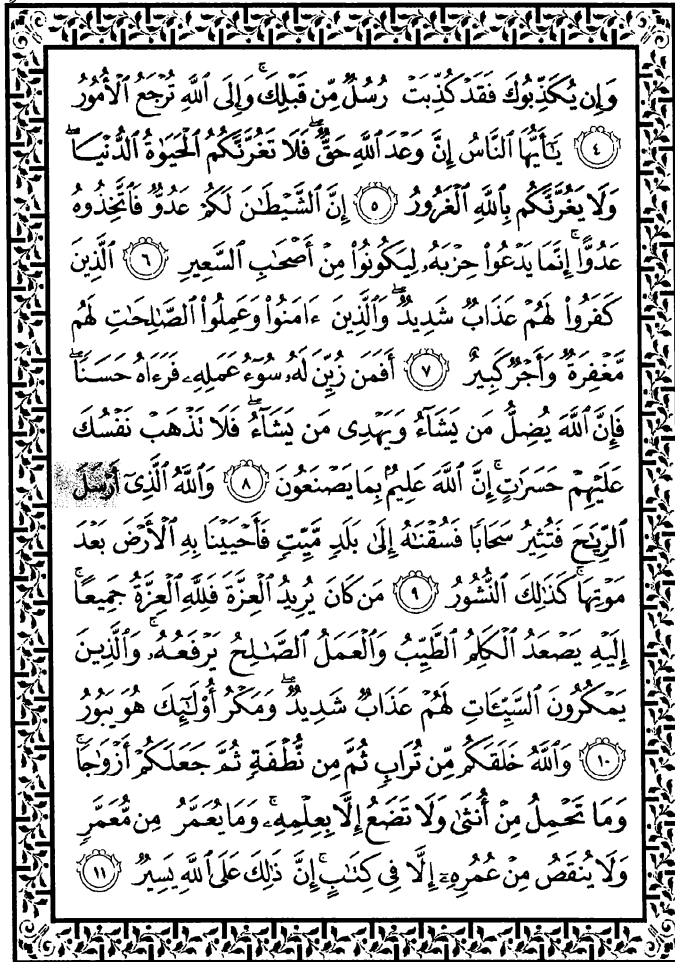 وَإِن يُكَذِّبُوكَ فَقَدْ كُذِّبَتْ رُسُلٌ مِّن قَبْلِكَ ۚ وَإِلَى ٱللَّهِ تُرْجَعُ ٱلْأُمُورُ
﴿٤﴾ يَـٰٓأَيُّهَا ٱلنَّاسُ إِنَّ وَعْدَ ٱللَّهِ حَقٌّ ۖ فَلَا تَغُرَّنَّكُمُ ٱلْحَيَوٰةُ ٱلدُّنْيَا ۖ
وَلَا يَغُرَّنَّكُم بِٱللَّهِ ٱلْغَرُورُ ﴿٥﴾ إِنَّ ٱلشَّيْطَـٰنَ لَكُمْ عَدُوٌّ فَٱتَّخِذُوهُ
عَدُوًّا ۚ إِنَّمَا يَدْعُوا۟ حِزْبَهُۥ لِيَكُونُوا۟ مِنْ أَصْحَـٰبِ ٱلسَّعِيرِ ﴿٦﴾ ٱلَّذِينَ
كَفَرُوا۟ لَهُمْ عَذَابٌ شَدِيدٌ ۖ وَٱلَّذِينَ ءَامَنُوا۟ وَعَمِلُوا۟ ٱلصَّـٰلِحَـٰتِ لَهُم
مَّغْفِرَةٌ وَأَجْرٌ كَبِيرٌ ﴿٧﴾ أَفَمَن زُيِّنَ لَهُۥ سُوٓءُ عَمَلِهِۦ فَرَءَاهُ حَسَنًا ۖ
فَإِنَّ ٱللَّهَ يُضِلُّ مَن يَشَآءُ وَيَهْدِى مَن يَشَآءُ ۖ فَلَا تَذْهَبْ نَفْسُكَ
عَلَيْهِمْ حَسَرَٰتٍ ۚ إِنَّ ٱللَّهَ عَلِيمٌۢ بِمَا يَصْنَعُونَ ﴿٨﴾ وَٱللَّهُ ٱلَّذِىٓ أَرْسَلَ
ٱلرِّيَـٰحَ فَتُثِيرُ سَحَابًا فَسُقْنَـٰهُ إِلَىٰ بَلَدٍ مَّيِّتٍ فَأَحْيَيْنَا بِهِ ٱلْأَرْضَ بَعْدَ
مَوْتِهَا ۚ كَذَٰلِكَ ٱلنُّشُورُ ﴿٩﴾ مَن كَانَ يُرِيدُ ٱلْعِزَّةَ فَلِلَّهِ ٱلْعِزَّةُ جَمِيعًا ۚ
إِلَيْهِ يَصْعَدُ ٱلْكَلِمُ ٱلطَّيِّبُ وَٱلْعَمَلُ ٱلصَّـٰلِحُ يَرْفَعُهُۥ ۚ وَٱلَّذِينَ
يَمْكُرُونَ ٱلسَّيِّـَٔاتِ لَهُمْ عَذَابٌ شَدِيدٌ ۖ وَمَكْرُ أُو۟لَـٰٓئِكَ هُوَ يَبُورُ
﴿١٠﴾ وَٱللَّهُ خَلَقَكُم مِّن تُرَابٍ ثُمَّ مِن نُّطْفَةٍ ثُمَّ جَعَلَكُمْ أَزْوَٰجًا ۚ
وَمَا تَحْمِلُ مِنْ أُنثَىٰ وَلَا تَضَعُ إِلَّا بِعِلْمِهِۦ ۚ وَمَا يُعَمَّرُ مِن مُّعَمَّرٍ
وَلَا يُنقَصُ مِنْ عُمُرِهِۦٓ إِلَّا فِى كِتَـٰبٍ ۚ إِنَّ ذَٰلِكَ عَلَى ٱللَّهِ يَسِيرٌ ﴿١١﴾